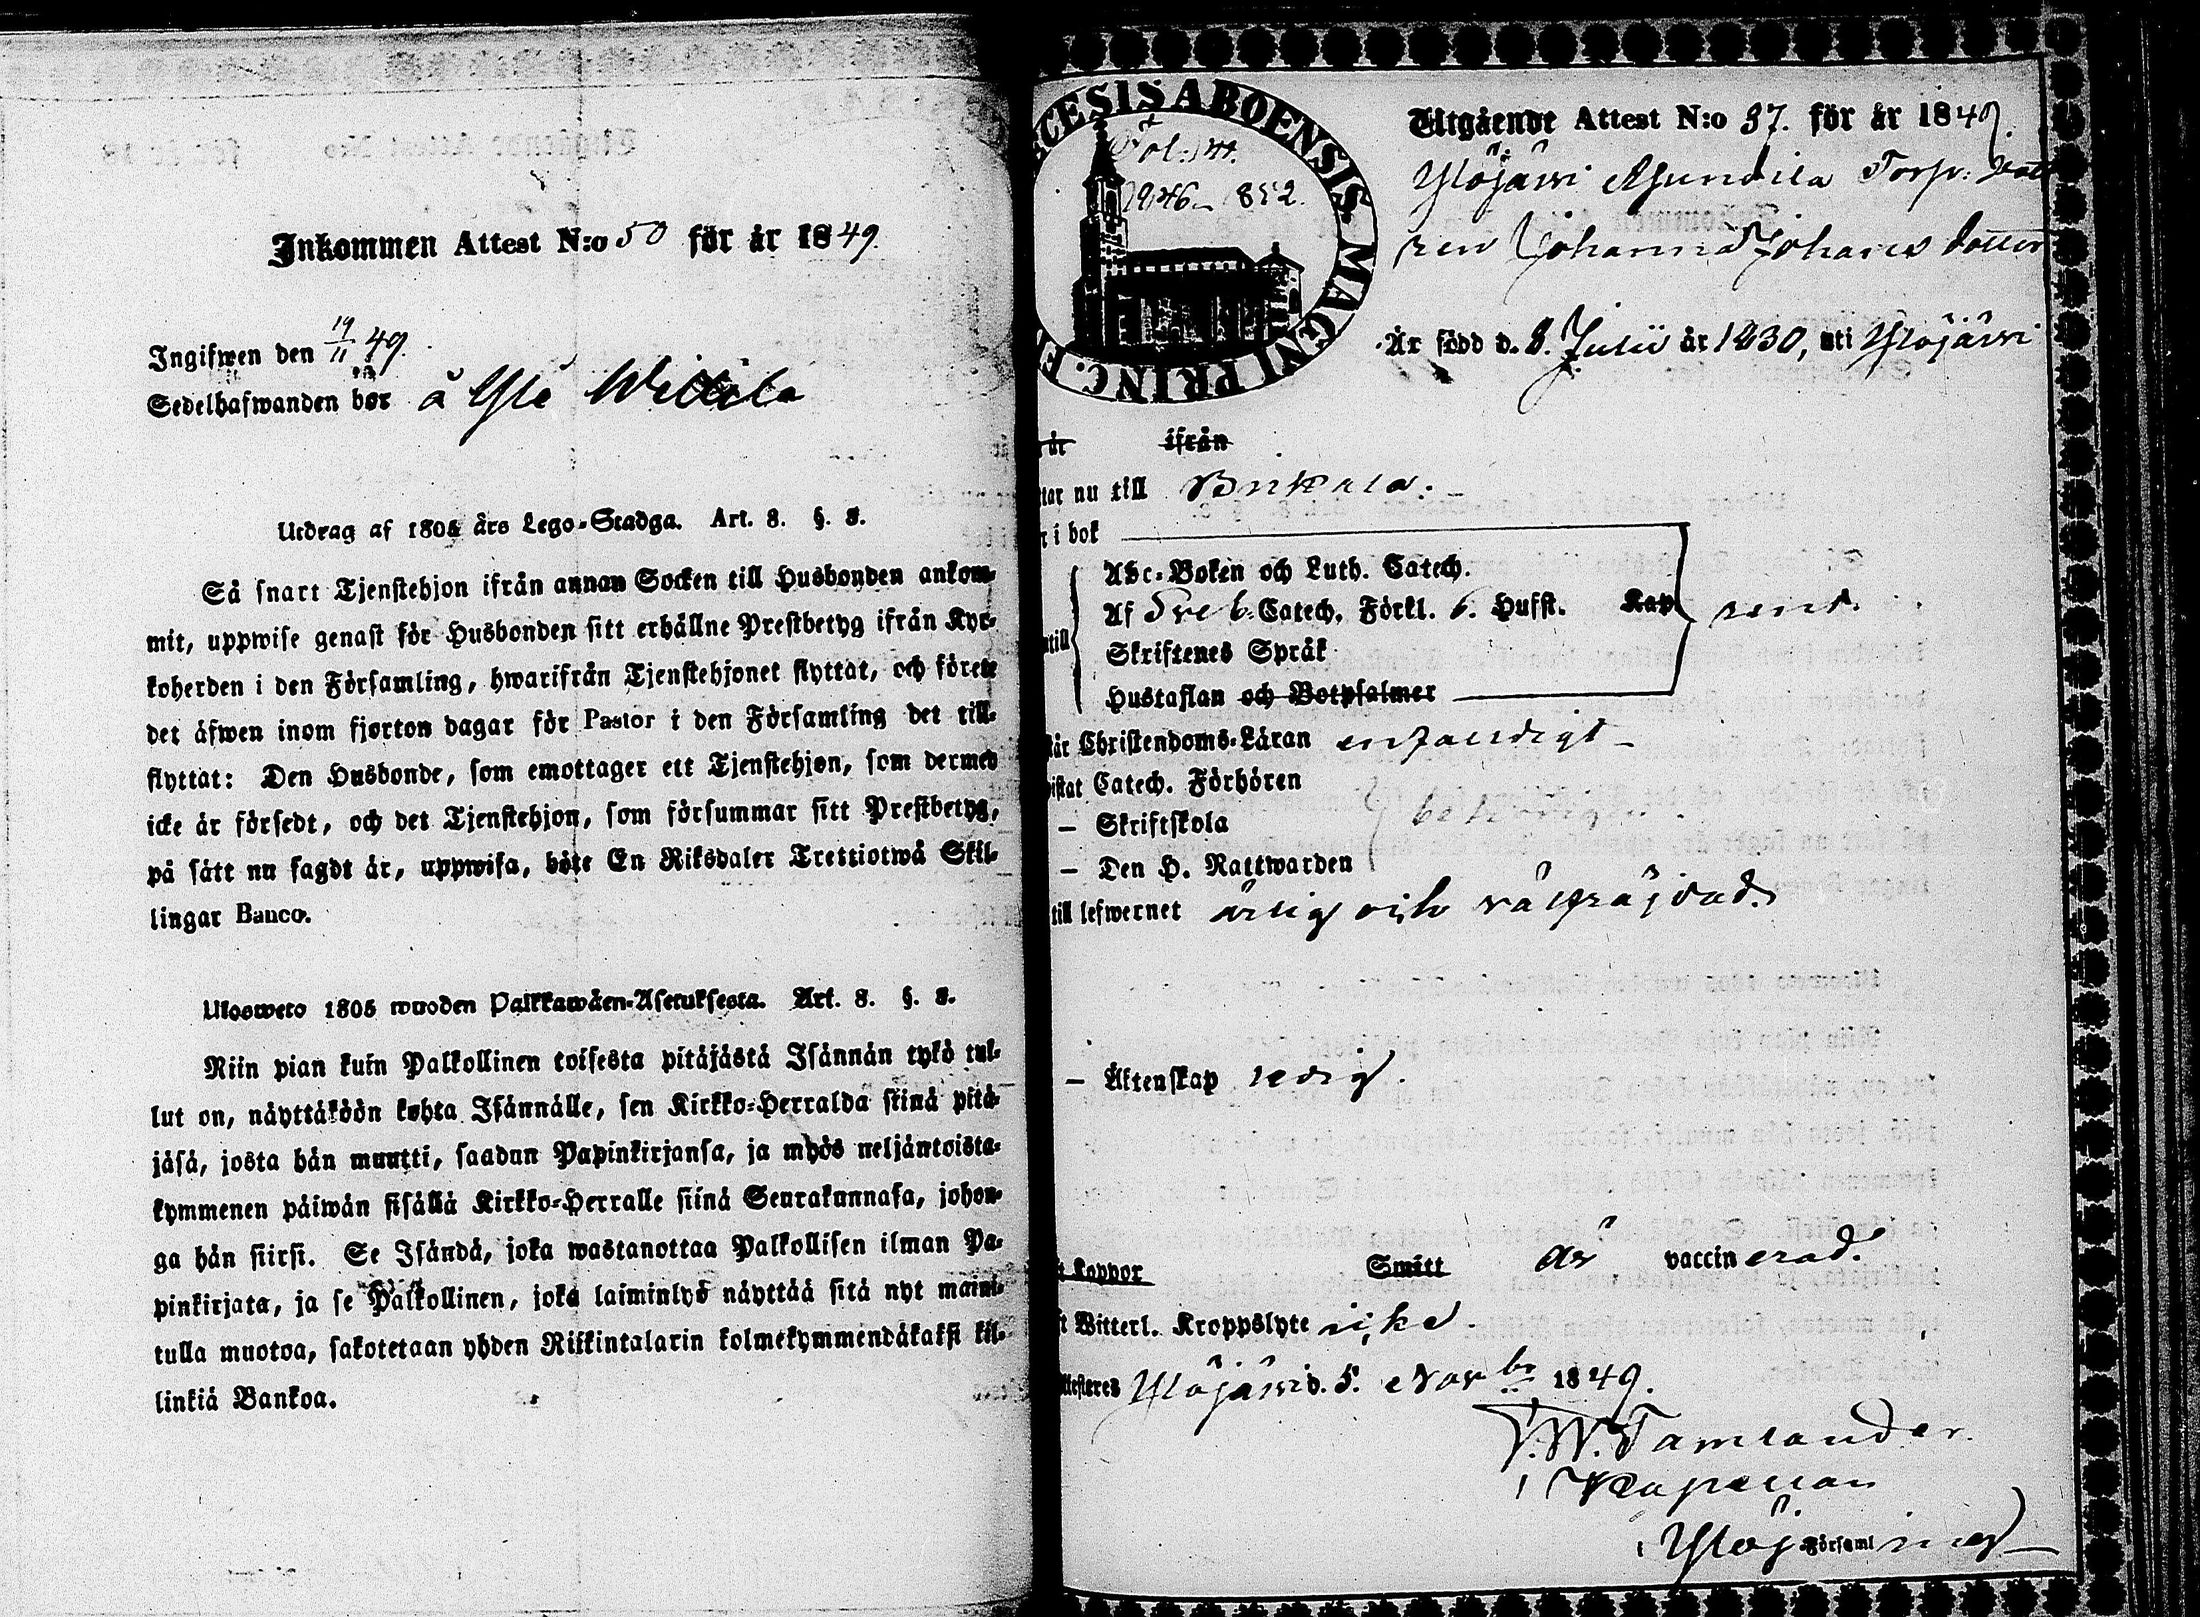 Inkommen Attest N:o 50 för år 1849.
Ingifwen den 19/11 49.
Sedelhafwanden bor å Yle Wittila
Utdrag af 1805 års Lego-Stadga. Art. 8. §. 8.
Så snart Tjenstehjon ifrån annan Socken till Husbonden ankom-
mit, uppwise genast för Husbonden sitt erhållne Prestbetyg ifrån Kyr-
koherden i den Församling, hwarifrån Tjenstehjonet flyttat, och förete
det äfwen inom fjorton dagar för Pastor i den Församling det till-
flyttat: Den Husbonde, som emottager ett Tjenstehjon, som dermed
icke är försedt, och det Tjenstehjon, som försummar sitt Prestbetyg,
på sätt nu sagdt är, uppwisa, böte En Riksdaler Trettiotwå Skil-
lingar Banco.
Ulosweto 1805 wuoden Palkkawäen-Asetuksesta. Art. 8. §. 8.
Niin pian kuin Palkollinen toisesta pitäjästä Isännän tykö tul-
lut on, näyttäköön kohta Isännälle, sen Kirkko-Herralda siinä pitä-
jäsä, josta hän muutti, saadun Papinkirjansa, ja myös neljäntoista-
kymmenen päiwän sisällä Kirkko-Herralle siinä Seurakunnasa, johon-
ga hän siirsi. Se Isändä, joka wastanottaa Palkollisen ilman Pa-
pinkirjata, ja se Palkollinen, joka laiminlyö näyttää sitä nyt maini-
tulla muotoa, sakotetaan yhden Riikintalarin kolmekymmendäkaksi kil-
linkiä Bankoa.
CESIS ABOENSIS MAGNI PRINC. F
Fol: 
1846- 852.
Utgående Attest N:o 37. för år 1849.
Ylöjärwi Torp: dott
ren Johanna Johans dotter
Är född d. 8. Julii år 1830, uti Ylöjärwi
är ifrån
tar nu till Birkala.
r i bok
Abc-Boken och Luth. Catech.
Af Sveb. Catech. Förkl. 6. Hufst. Kap
Skriftenes Språk
Hustaflan och Botpsalmer
ntill rent.
tår Christendoms-Läran enfaldigt
istat Catech. Förhören
— Skriftskola behörigen
— Den H. Nattwarden
till lefwernet ärlig och wälfräjdad.
— Äktenskap ledig.
t Koppor Smitt är vaccinerad.
ft Witterl. Kroppslyte icke.
ttesteras Ylöjärwi d. 5. Novbr 1849.
F. W. Tamlander.
Kapellan
i Ylöj. Församling